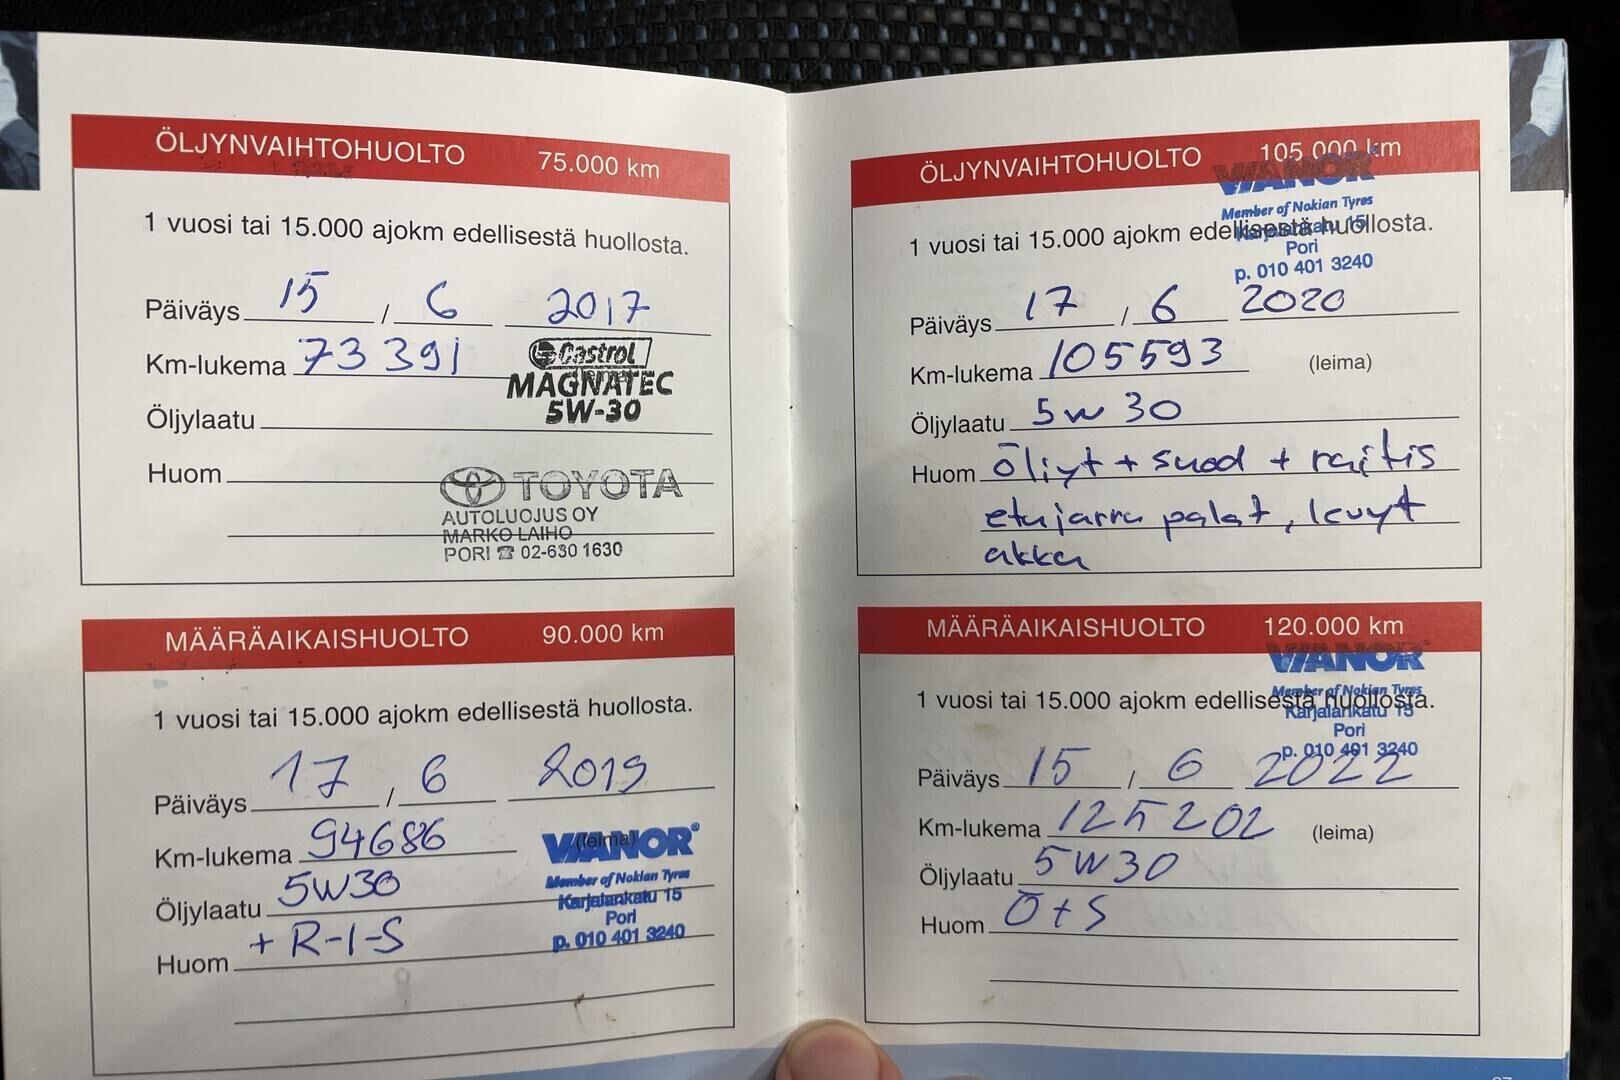 ÖLJYNVAIHTOHUOLTO 75.000 km
1 vuosi tai 15.000 ajokm edellisestä huollosta.
Päiväys 15 / 6 2017
Km-lukema 73 391
Castrol
MAGNATEC
5W-30
Öljylaatu
Huom
TOYOTA
AUTOLUOJUS OY
MARKO LAIHO
PORI ☎ 02-630 1630
MÄÄRÄAIKAISHUOLTO 90.000 km
1 vuosi tai 15.000 ajokm edellisestä huollosta.
Päiväys 17 / 6 2019
Km-lukema 94686
(leima)
VIANOR®
Öljylaatu 5W30
Member of Nokian Tyres
Karjalankatu 15
Pori
p. 010 401 3240
Huom + R-I-S
ÖLJYNVAIHTOHUOLTO 105.000 km
VIANOR
Member of Nokian Tyres
1 vuosi tai 15.000 ajokm edellisestä huollosta.
Karjalankatu 15
Pori
p. 010 401 3240
Päiväys 17 / 6 2020
Km-lukema 105593 (leima)
Öljylaatu 5w 30
Huom öliyt + suod + raitis
etujarru palat, levyt
akku
MÄÄRÄAIKAISHUOLTO 120.000 km
VIANOR
Member of Nokian Tyres
1 vuosi tai 15.000 ajokm edellisestä huollosta.
Karjalankatu 15
Pori
p. 010 401 3240
Päiväys 15 / 6 2022
Km-lukema 125 202 (leima)
Öljylaatu 5W30
Huom Ö+S